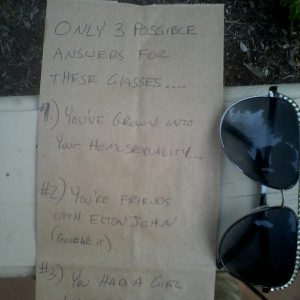 ONLY 3 POSSIBLE
ANSWERS FOR
THESE GLASSES....
#1.) YOU'VE GROWN INTO
YOUR HOMOSEXUALITY...
#2) YOU'RE FRIENDS
WITH ELTON JOHN
(GOOGLE IT)
#3) YOU HAD A GIRL